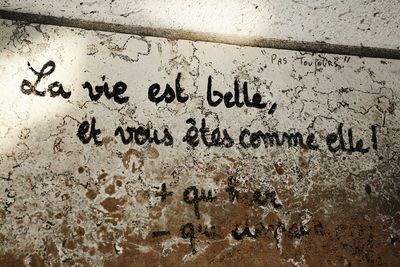 "Pas Toujours"
La vie est belle,
et vous êtes comme elle!
+ qu'hier
- que demain